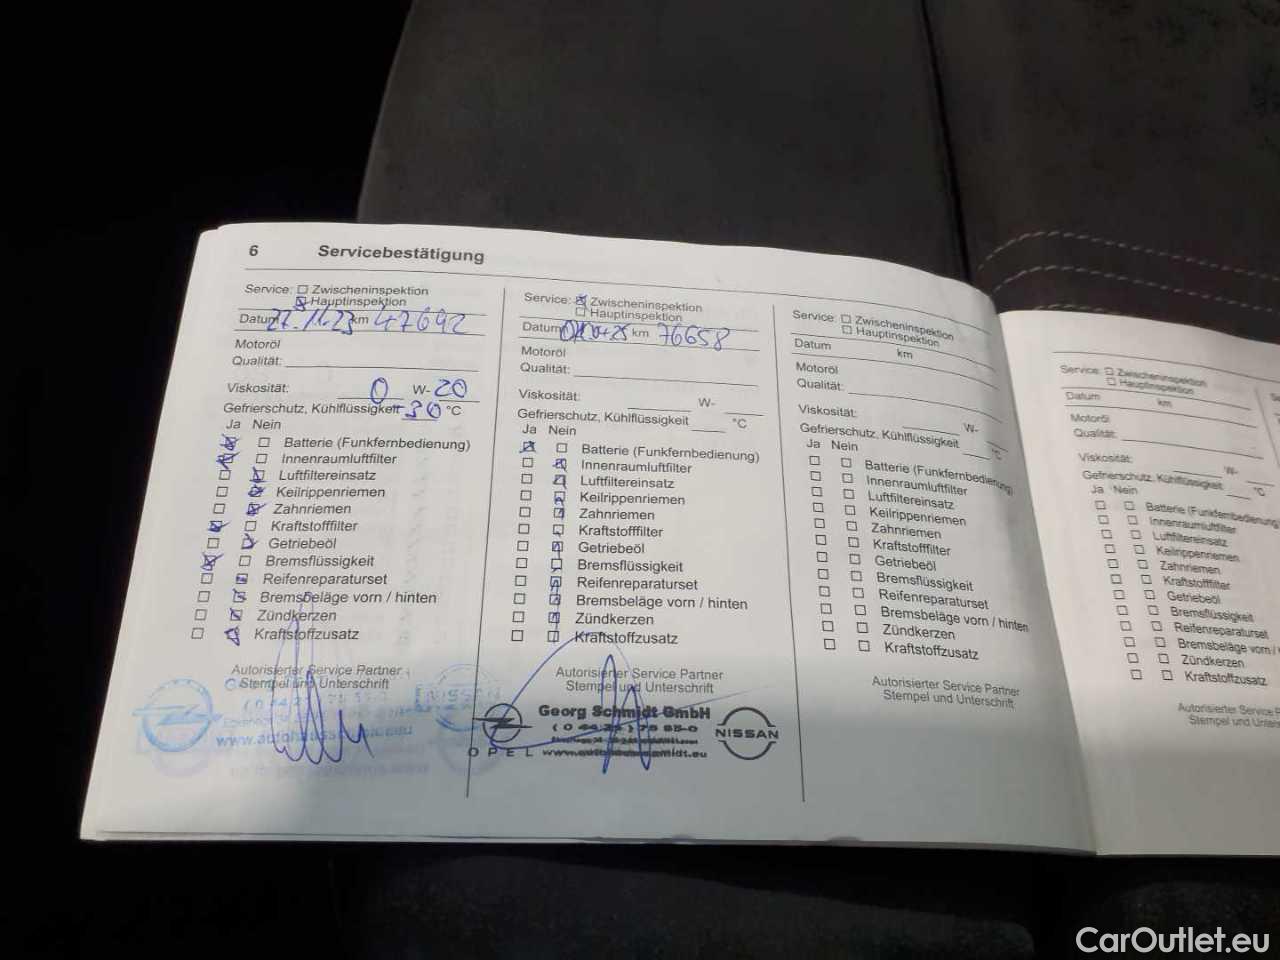 6 Servicebestätigung
Service: Zwischeninspektion
Hauptinspektion
Datum 27.11.23 km 47692
Motoröl
Qualität:
Viskosität: 0 W- 20
Gefrierschutz, Kühlflüssigkeit -30 °C
Ja Nein
Batterie (Funkfernbedienung)
Innenraumluftfilter
Luftfiltereinsatz
Keilrippenriemen
Zahnriemen
Kraftstofffilter
Getriebeöl
Bremsflüssigkeit
Reifenreparaturset
Bremsbeläge vorn / hinten
Zündkerzen
Kraftstoffzusatz
Autorisierter Service Partner
Stempel und Unterschrift
NISSAN
Service: Zwischeninspektion
Hauptinspektion
Datum km 76658
Motoröl
Qualität:
Viskosität: W-
Gefrierschutz, Kühlflüssigkeit °C
Ja Nein
Batterie (Funkfernbedienung)
Innenraumluftfilter
Luftfiltereinsatz
Keilrippenriemen
Zahnriemen
Kraftstofffilter
Getriebeöl
Bremsflüssigkeit
Reifenreparaturset
Bremsbeläge vorn / hinten
Zündkerzen
Kraftstoffzusatz
Autorisierter Service Partner
Stempel und Unterschrift
Georg Schmidt GmbH
OPEL
NISSAN
Service: Zwischeninspektion
Hauptinspektion
Datum km
Motoröl
Qualität:
Viskosität: W-
Gefrierschutz, Kühlflüssigkeit °C
Ja Nein
Batterie (Funkfernbedienung)
Innenraumluftfilter
Luftfiltereinsatz
Keilrippenriemen
Zahnriemen
Kraftstofffilter
Getriebeöl
Bremsflüssigkeit
Reifenreparaturset
Bremsbeläge vorn / hinten
Zündkerzen
Kraftstoffzusatz
Autorisierter Service Partner
Stempel und Unterschrift
Service: Zwischeninspektion
Hauptinspektion
Datum km
Motoröl
Qualität:
Viskosität: W-
Gefrierschutz, Kühlflüssigkeit °C
Ja Nein
Batterie (Funkfernbedienung
Innenraumluftfilter
Luftfiltereinsatz
Keilrippenriemen
Zahnriemen
Kraftstofffilter
Getriebeöl
Bremsflüssigkeit
Reifenreparaturset
Bremsbeläge vorn /
Zündkerzen
Kraftstoffzusatz
Autorisierter Service
Stempel und
CarOutlet.eu